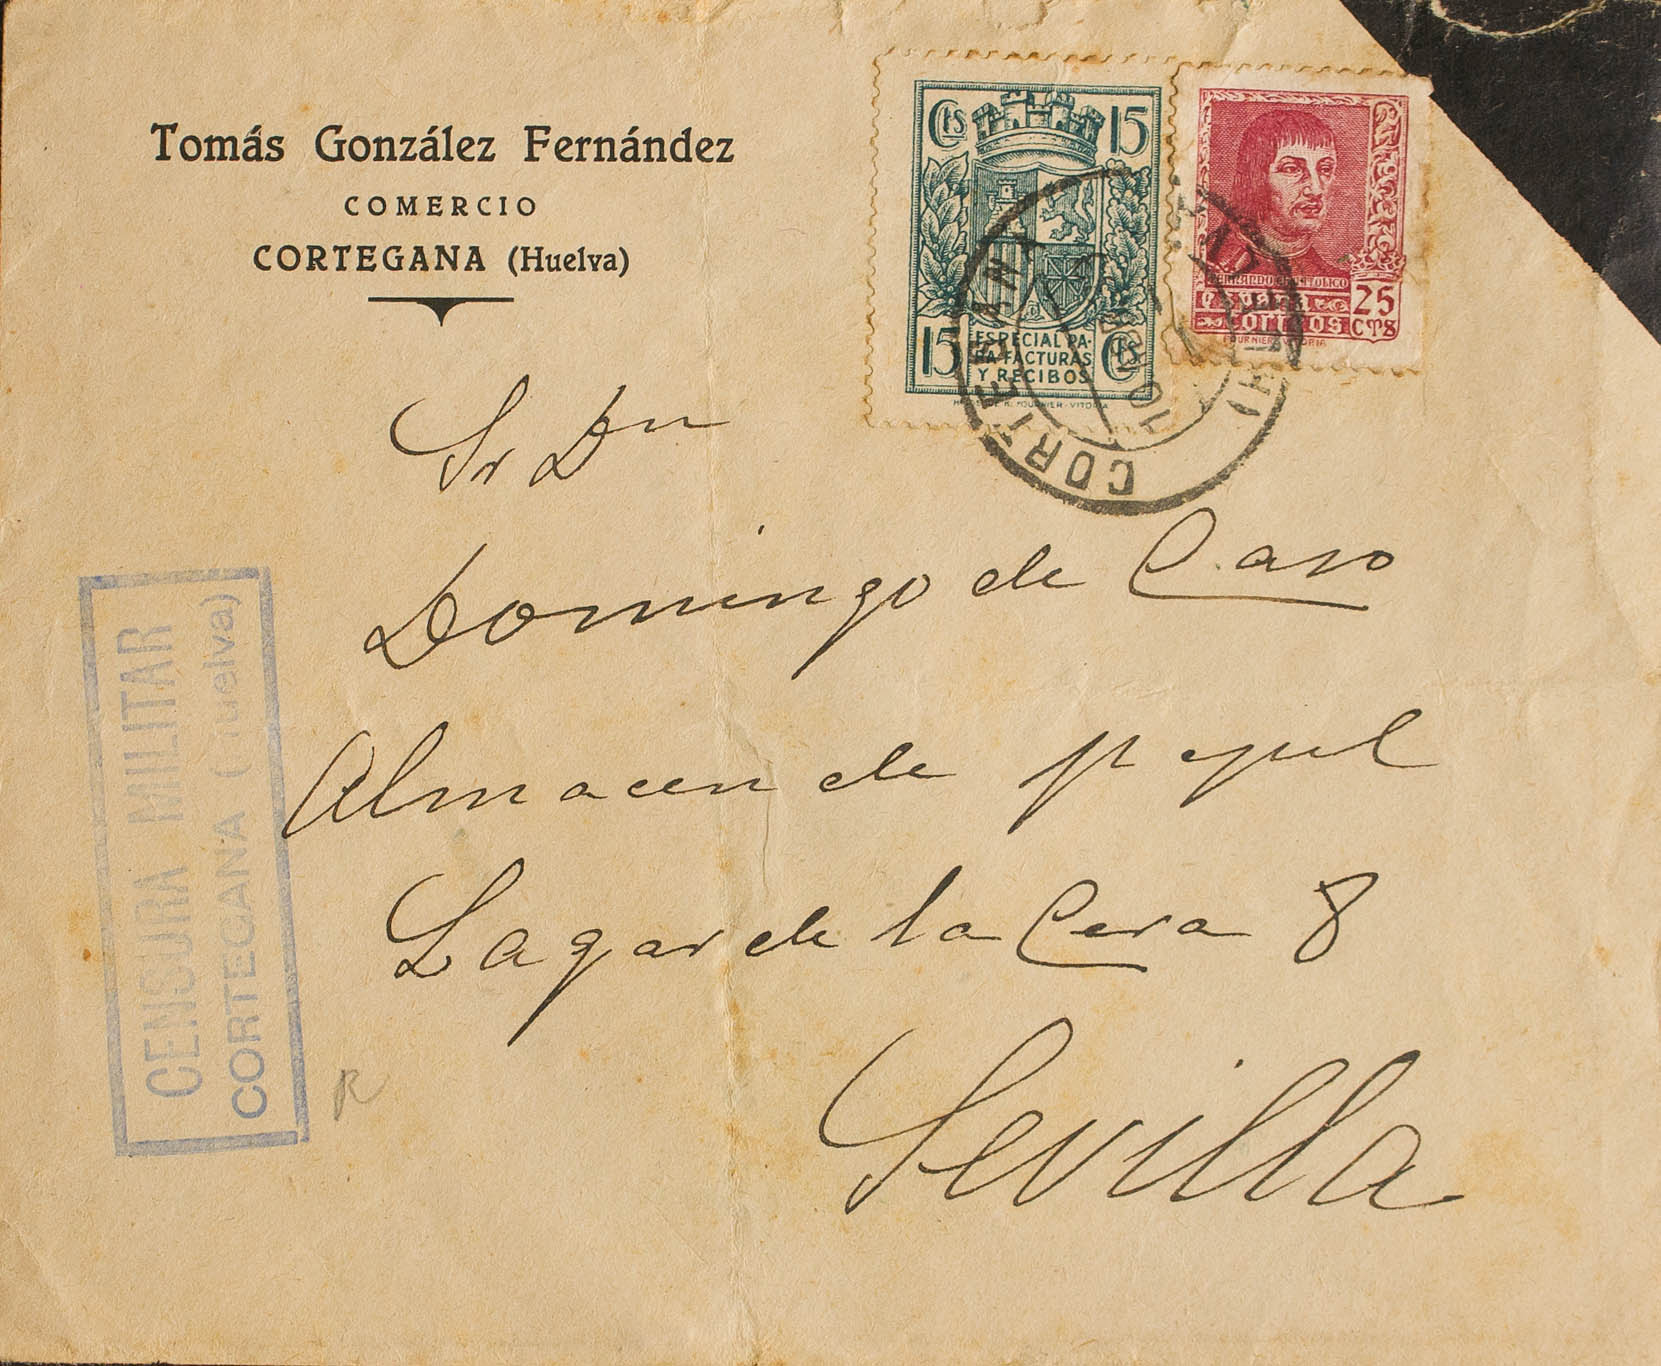 Tomás González Fernández
COMERCIO
CORTEGANA (Huelva)
Cts 15
15 Cts
ESPECIAL PA-
RA FACTURAS
Y RECIBOS
FERNANDO EL CATOLICO
ESPAÑA
CORREOS
25
CTS
FOURNIER VITORIA
CORTEGANA
(HUELVA)
Sr Dn
Domingo de Caso
Almacen de papel
Lagar de la Cera 8
Sevilla
CENSURA MILITAR
CORTEGANA (Huelva)
R